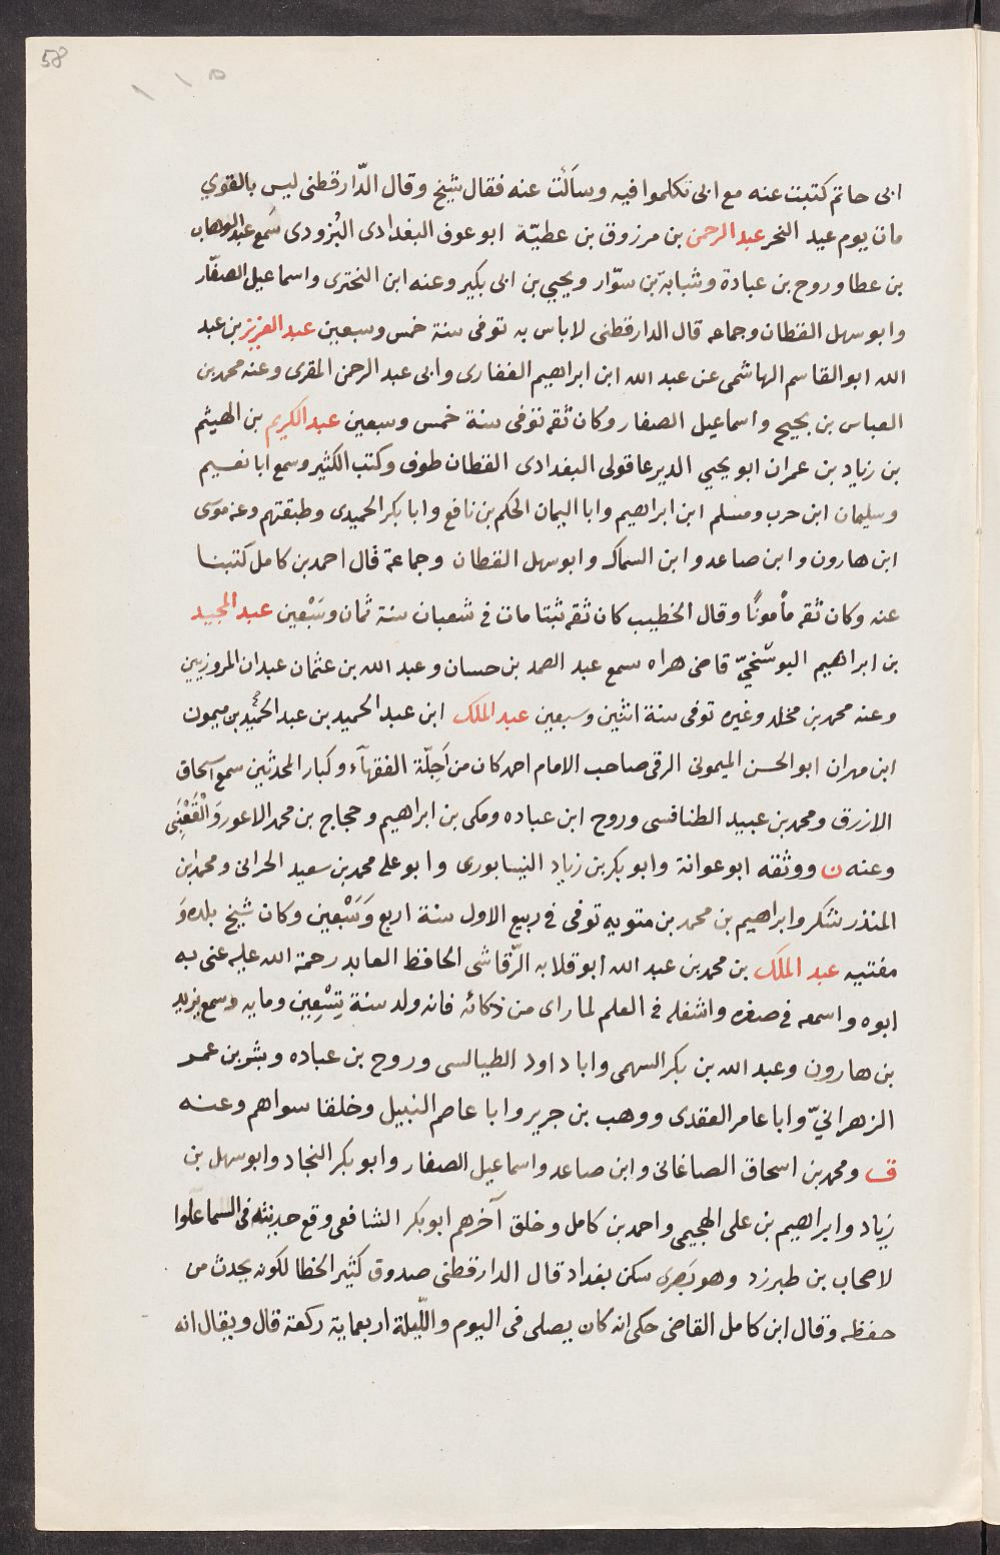 58
ابى حاتم كتبت عنه مع ابى تكلموا فيه وسألت عنه فقال شيخ وقال الدّارقطنى ليس بالقوي
مات يوم عيد النحر عبد الرحمن بن مرزوق بن عطيّة ابو عوف البغدادى البُزودى سَمع عبد الوهاب
بن عطا وروح بن عبادة وشبابة بن سوّار ويحيي بن ابى بكير وعنه ابن البخترى واسماعيل الصفّار
وابو سهل القطان وجماعه قال الدارقطنى لاباس به توفى سنة خمس وسبعين عبد العزيز بن عبد
الله ابو القاسم الهاشمى عن عبد الله ابن ابراهيم الغفارى وابى عبد الرحمن المقرى وعنه محمد بن
العباس بن نجيح واسماعيل الصفار وكان ثقه توفى سنة خمس وسبعين عبد الكريم بن الهيثم
بن زياد بن عمران ابو يحيي الديرعاقولى البغدادى القطان طوف وكتب الكثير وسمع ابا نعيم
وسليمان ابن حرب ومسلم ابن ابراهيم وابا اليمان الحكم بن نافع وابا بكر الحميدى وطبقتهم وعنه موسى
ابن هارون وابن صاعد وابن السماك وابو سهل القطان وجماعة قال احمد بن كامل كتبنا
عنه وكان ثقه مأمونًا وقال الخطيب كان ثقه ثبتا مات فى شعبان سنة ثمان وسَبْعين عبد المجيد
بن ابراهيم البوشنخيّ قاضى هراه سمع عبد الصمد بن حسان وعبد الله بن عثمان عبدان المروزيين
وعنه محمد بن مخلد وغيره توفى سنة اثنين وسبعين عبد الملك ابن عبد الحميد بن عبد الحميد بن ميمون
ابن مهران ابو الحسن الميمونى الرقى صاحب الامام احمد كان من اَجِلّة الفقهآء وكبار المحدثين سمع اسحاق
الازرق ومحمد بن عبيد الطنافسى وروح ابن عباده ومكى بن ابراهيم وحجاج بن محمد الاعور وَالْقَعْنَبَى
وعنه ن ووثقه ابو عوانة وابو بكر بن زياد النيسابورى وابو على محمد بن سعيد الحرانى ومحمد ابن
المنذر شكر وابراهيم بن محمد بن متويه توفى فى ربيع الاول سنة اربع وَسَبْعين وكان شيخ بلده وَ
مفتيه عبد الملَك بن محمد بن عبد الله ابو قلابه الرّقاشى الحافظ العابد رحمة الله عليه عنى به
ابوه واسمعه فى صغره واشغله فى العلم لما راى من ذكائه فانه ولد سنة تِسْعِين ومايه وسمع يزيد
بن هارون وعبد الله بن بكر السهمى وابا داود الطيالسى وروح بن عباده وبشر بن عمر
الزهرانيّ وابا عامر العقدى ووهب بن جرير وابا عاصم النبيل وخلقا سواهم وعنه
ق ومحمد بن اسحاق الصاغانى وابن صاعد واسماعيل الصفار وابو بكر النجاد وابو سهل بن
زياد وابراهيم بن على الهجيمى واحمد بن كامل وخلق آخرهم ابو بكر الشافعى وقع حديثه فى السما علوا
لاصحاب بن طبرزد وهو بَصرى سكن بغداد قال الدارقطنى صدوق كثير الخطا لكونه يحدث من
حفظه وقال ابن كامل القاضى حكى انه كان يصلى فى اليوم واللّيلة اربعماية ركعة قال ويقال انه